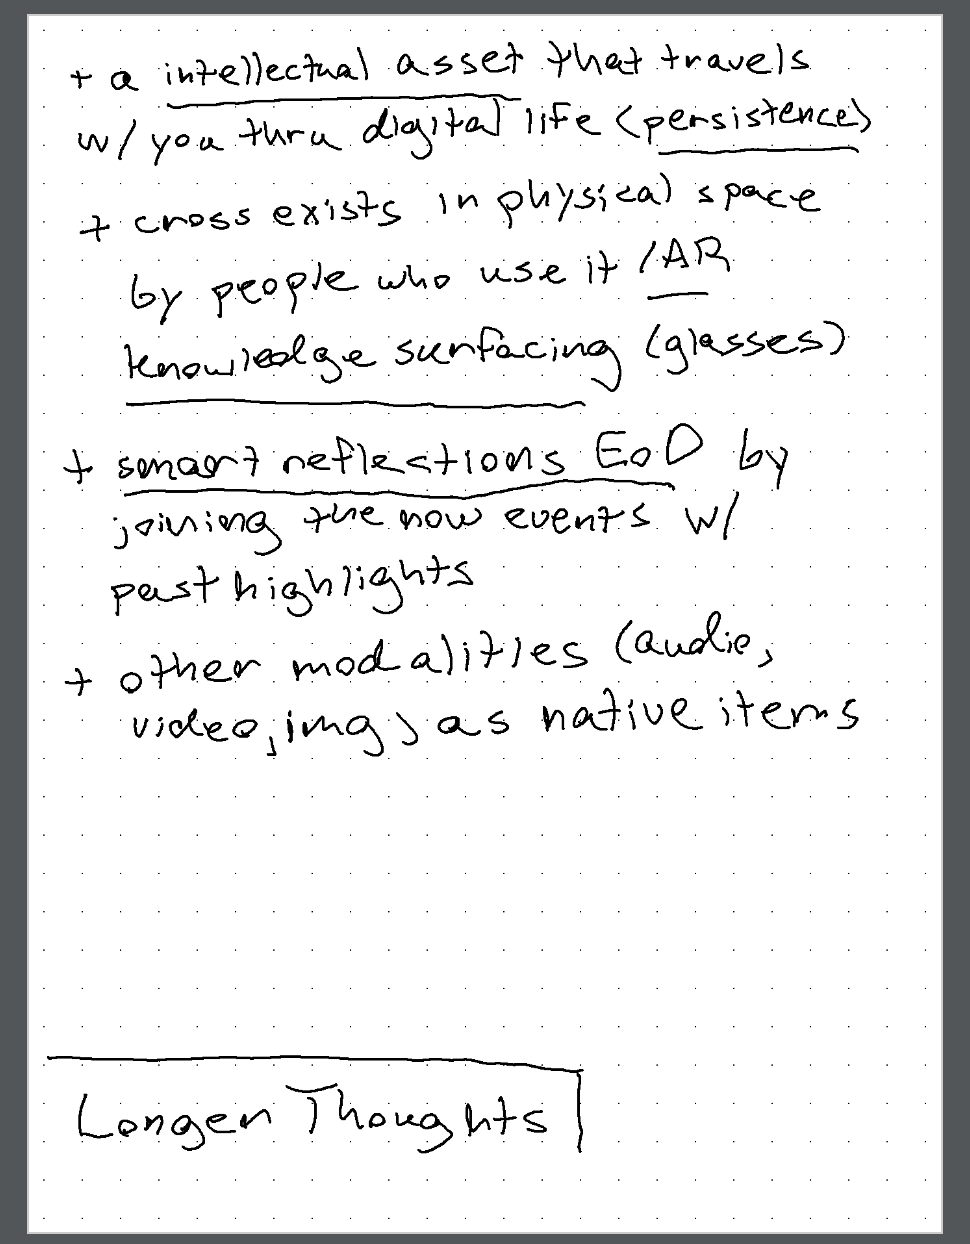 + a intellectual asset that travels
w/ you thru digital life (persistence)
+ cross exists in physical space
by people who use it /AR
knowledge surfacing (glasses)
+ smart reflections EoD by
joining the now events w/
past highlights
+ other modalities (audio,
video, img) as native items
Longer Thoughts